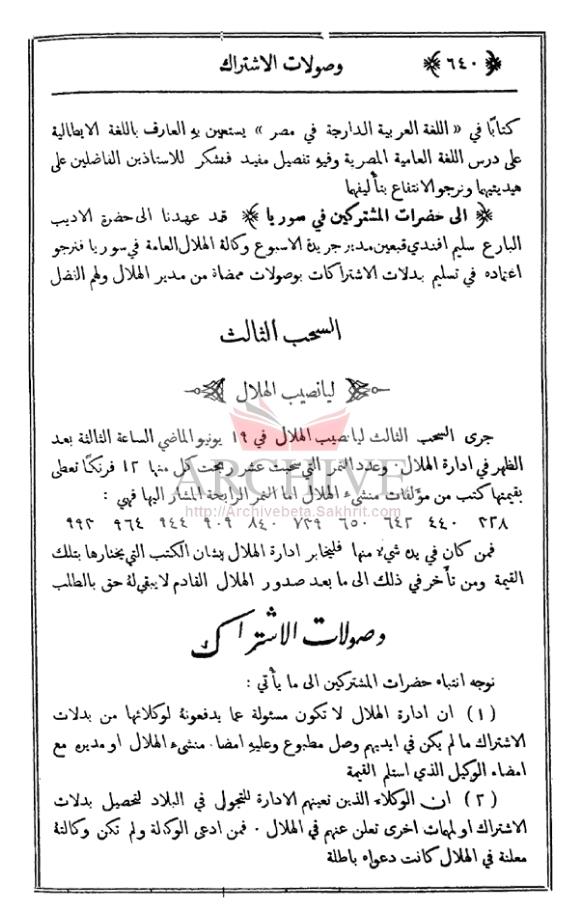 ﴿٦٤٠﴾ وصولات الاشتراك
كتابًا في « اللغة العربية الدارجة في مصر » يستعين بهِ العارف باللغة الايطالية
على درس اللغة العامية المصرية وفيهِ تفصيل مفيد فنشكر للاستاذين الفاضلين على
هديتيهما ونرجو الانتفاع بتأليفهما
﴿ الى حضرات المشتركين في سوريا ﴾ قد عهدنا الى حضرة الاديب
البارع سليم افندي قبعين مدير جريدة الاسبوع وكالة الهلال العامة في سوريا فنرجو
اعتماده في تسليم بدلات الاشتراكات بوصولات ممضاة من مدير الهلال ولهم الفضل
السحب الثالث
ليانصيب الهلال
جرى السحب الثالث ليانصيب الهلال في ١٩ يونيو الماضي الساعة الثالثة بعد
الظهر في ادارة الهلال · وعدد النمر التي سحبت عشر ربحت كل منها ١٢ فرنكًا تعطى
بقيمتها كتب من مؤلفات منشىء الهلال اما النمر الرابحة المشار اليها فهي :
ARCHIVE
http://Archivebeta.Sakhrit.com
٢٣٨ ٤٤٠ ٦٤٢ ٦٥٠ ٧٢٩ ٨٤٠ ٩٠٩ ٩٤٤ ٩٦٤ ٩٩٢
فمن كان في يده شيء منها فليخابر ادارة الهلال بشان الكتب التي يختارها بتلك
القيمة ومن تأخر في ذلك الى ما بعد صدور الهلال القادم لا يبقى لهُ حق بالطلب
وصولات الاشتراك
نوجه انتباه حضرات المشتركين الى ما يأتي :
(١) ان ادارة الهلال لا تكون مسئولة عما يدفعونهُ لوكلائها من بدلات
الاشتراك ما لم يكن في ايديهم وصل مطبوع وعليهِ امضاء منشىء الهلال او مديره مع
امضاء الوكيل الذي استلم القيمة
(٢) ان الوكلاء الذين تعينهم الادارة للتجول في البلاد لتحصيل بدلات
الاشتراك او لمهمات اخرى تعلن عنهم في الهلال · فمن ادعى الوكالة ولم تكن وكالتهُ
معلنة في الهلال كانت دعواه باطلة